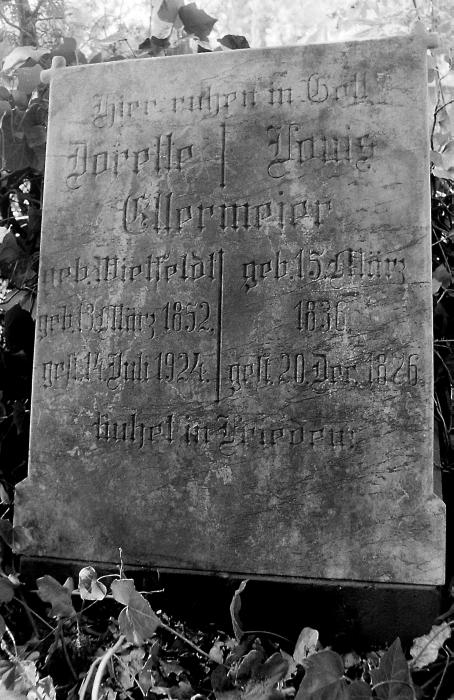 Hier ruhen in Gott
Dorette Louis
Ellermeier
geb. Wietfeldt geb. 15. März
geb. 13. März 1852. 1836.
gest. 14 Juli 1924. gest. 20. Dec. 1826.
Ruhet in Frieden.